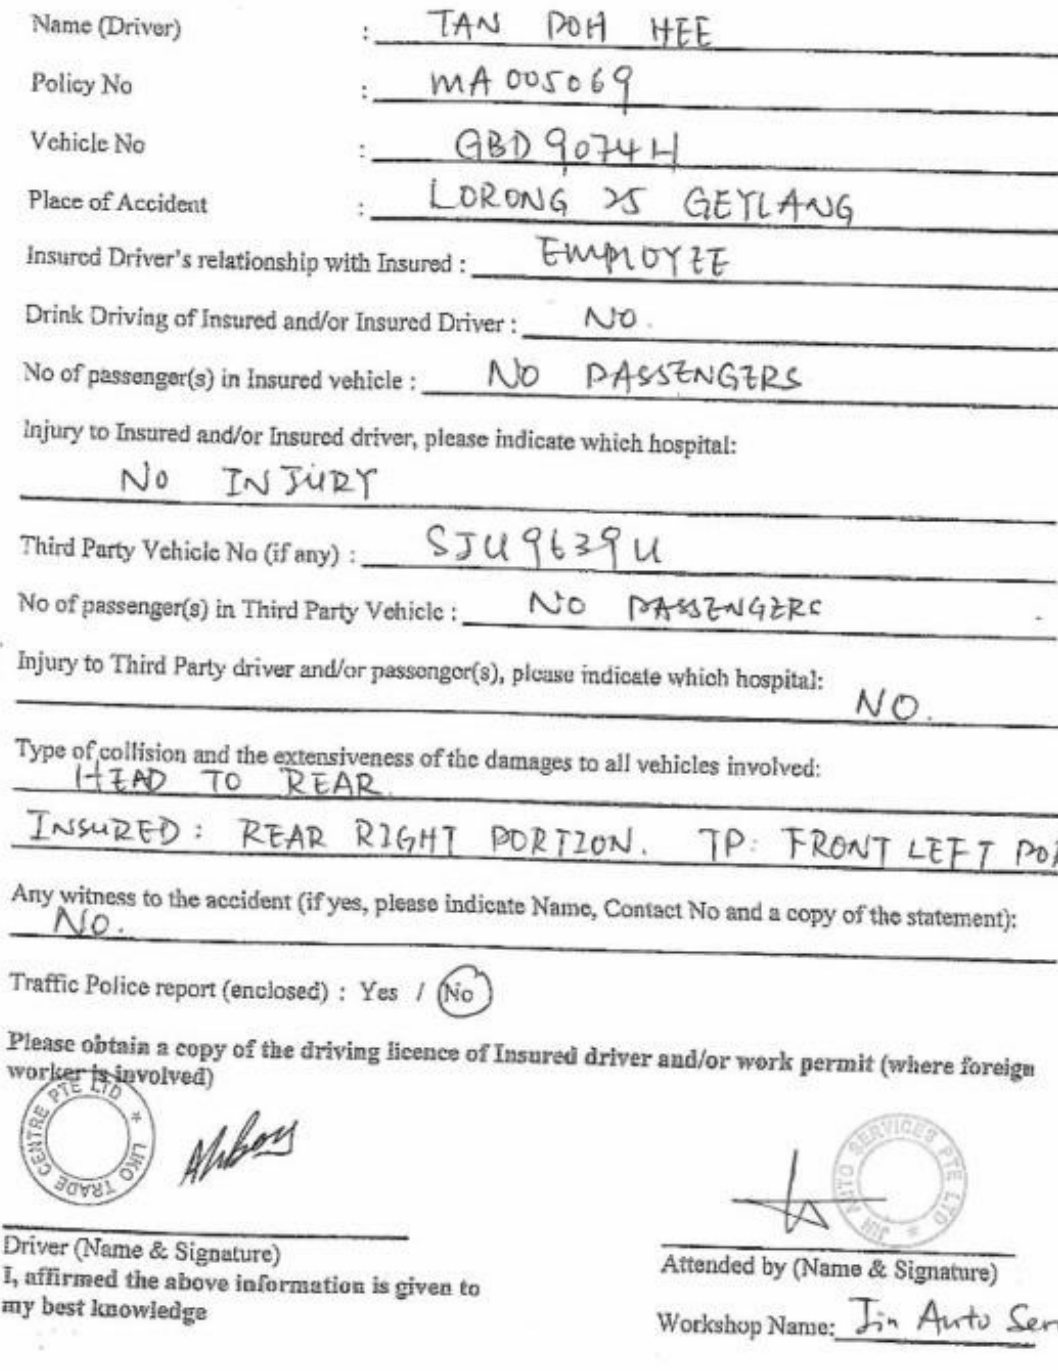 Name (Driver) : TAN POH HEE
Policy No : MA005069
Vehicle No : GBD9074H
Place of Accident : LORONG 25 GEYLANG
Insured Driver's relationship with Insured : EMPLOYEE
Drink Driving of Insured and/or Insured Driver : NO.
No of passenger(s) in Insured vehicle : NO PASSENGERS
Injury to Insured and/or Insured driver, please indicate which hospital:
NO INJURY
Third Party Vehicle No (if any) : SJU9639U
No of passenger(s) in Third Party Vehicle : NO PASSENGERS
Injury to Third Party driver and/or passenger(s), please indicate which hospital:
NO.
Type of collision and the extensiveness of the damages to all vehicles involved:
HEAD TO REAR.
INSURED: REAR RIGHT PORTION. TP: FRONT LEFT POR
Any witness to the accident (if yes, please indicate Name, Contact No and a copy of the statement):
NO.
Traffic Police report (enclosed) : Yes / No
Please obtain a copy of the driving licence of Insured driver and/or work permit (where foreign
worker is involved)
LIKO TRADE CENTRE PTE LTD *
JIN AUTO SERVICES PTE LTD *
Driver (Name & Signature)
I, affirmed the above information is given to
my best knowledge
Attended by (Name & Signature)
Workshop Name: Jin Auto Ser